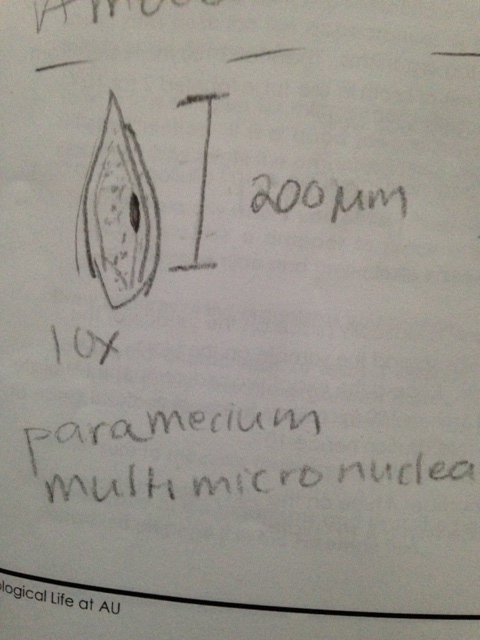 200µm
10x
paramecium
multimicronuclea
ological Life at AU